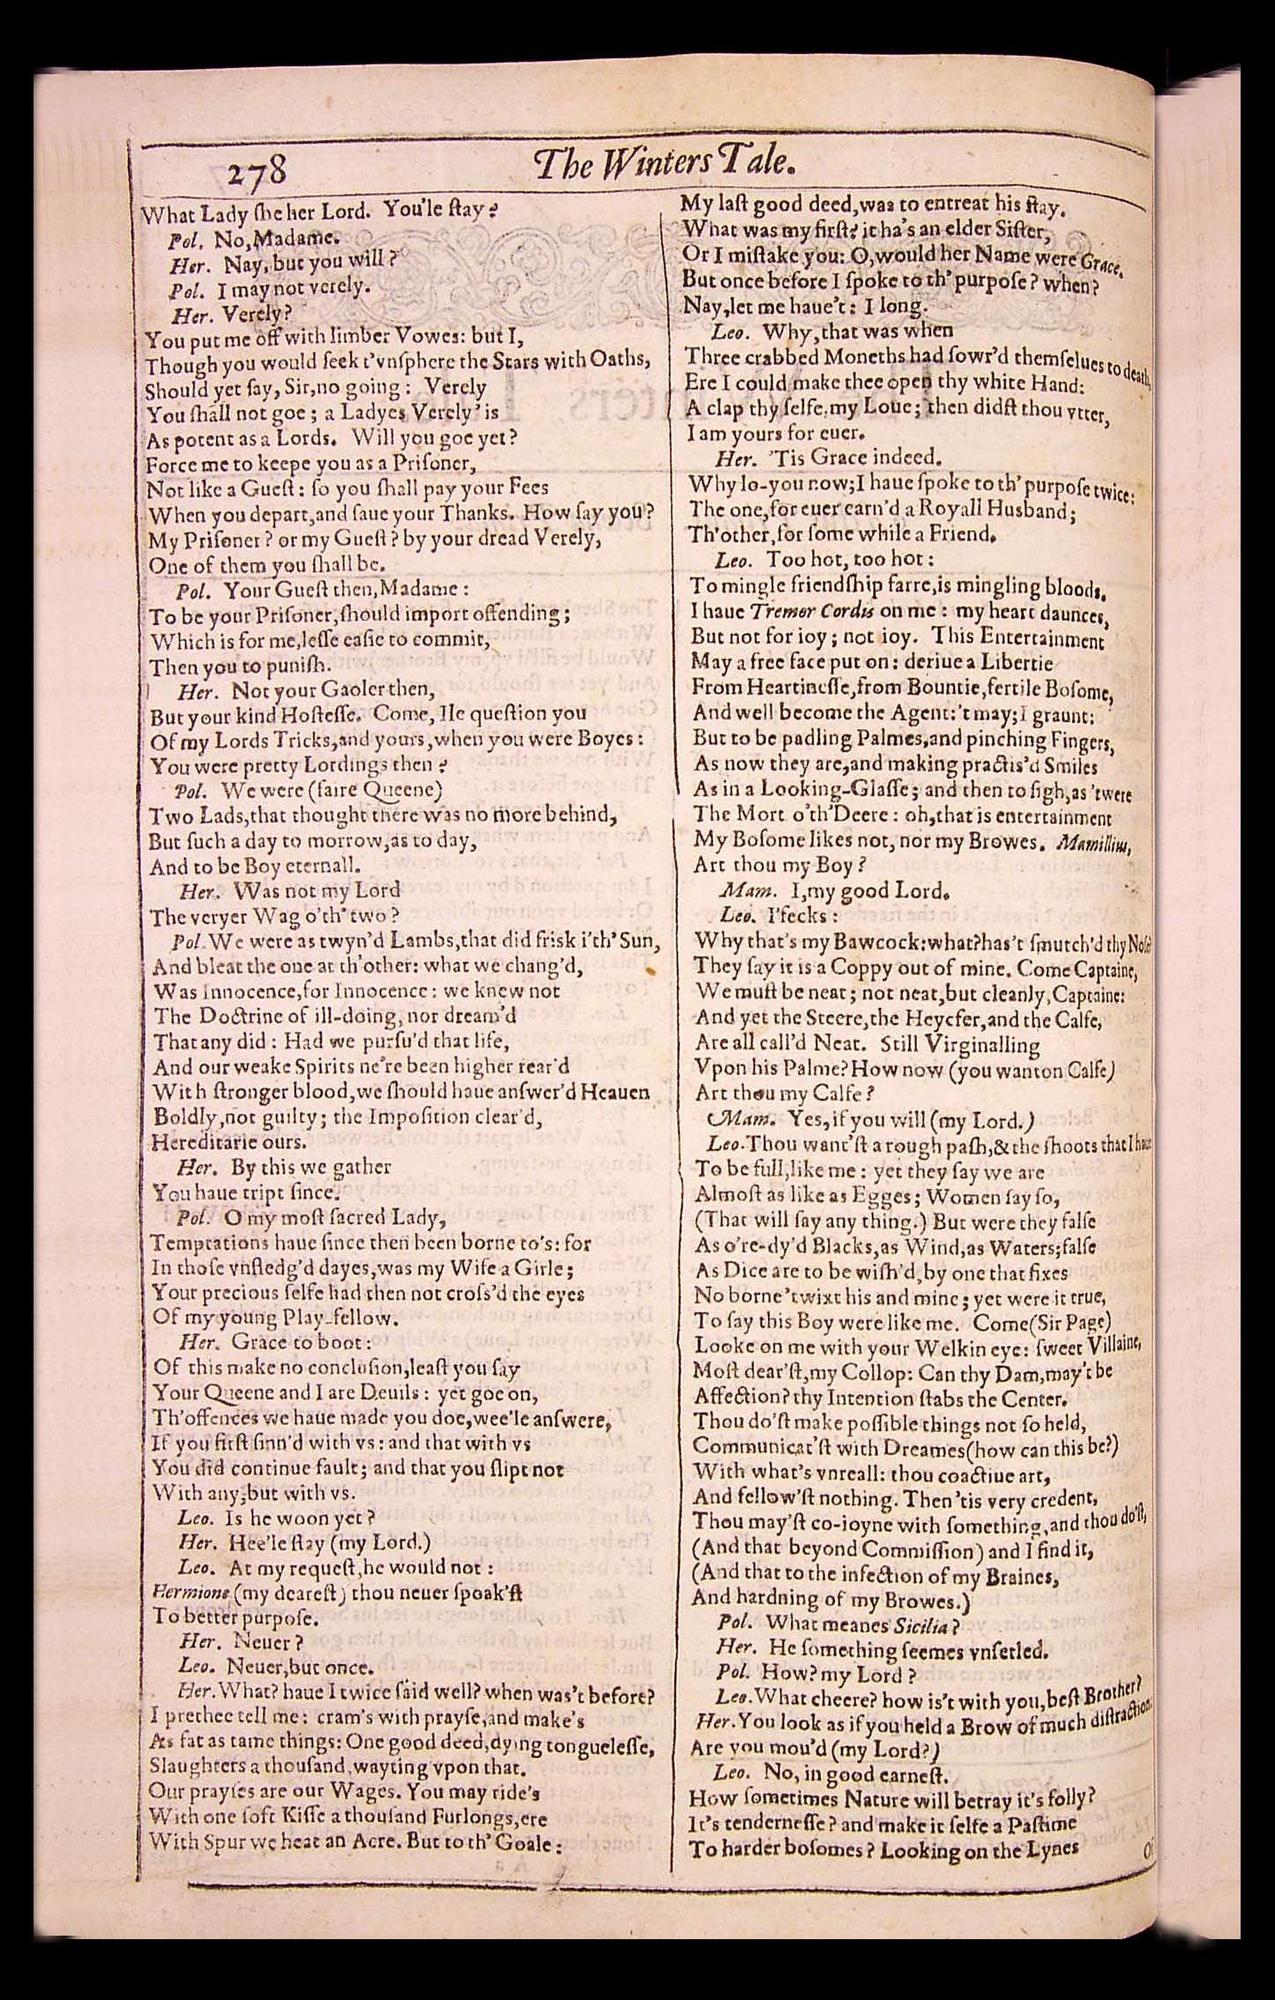 278
The Winters Tale.
What Lady ſhe her Lord. You'le ſtay?
Pol. No, Madame.
Her. Nay, but you will?
Pol. I may not verely.
Her. Verely?
You put me off with limber Vowes: but I,
Though you would ſeek t'vnſphere the Stars with Oaths,
Should yet ſay, Sir, no going: Verely
You ſhall not goe; a Ladyes Verely' is
As potent as a Lords. Will you goe yet?
Force me to keepe you as a Priſoner,
Not like a Gueſt: ſo you ſhall pay your Fees
When you depart, and ſaue your Thanks. How ſay you?
My Priſoner? or my Gueſt? by your dread Verely,
One of them you ſhall be.
Pol. Your Gueſt then, Madame:
To be your Priſoner, ſhould import offending;
Which is for me, leſſe eaſie to commit,
Then you to puniſh.
Her. Not your Gaoler then,
But your kind Hoſteſſe. Come, Ile queſtion you
Of my Lords Tricks, and yours, when you were Boyes:
You were pretty Lordings then?
Pol. We were (faire Queene)
Two Lads, that thought there was no more behind,
But ſuch a day to morrow, as to day,
And to be Boy eternall.
Her. Was not my Lord
The veryer Wag o'th' two?
Pol. We were as twyn'd Lambs, that did frisk i'th' Sun,
And bleat the one at th'other: what we chang'd,
Was Innocence, for Innocence: we knew not
The Doctrine of ill-doing, nor dream'd
That any did: Had we purſu'd that life,
And our weake Spirits ne're been higher rear'd
With ſtronger blood, we ſhould haue anſwer'd Heauen
Boldly, not guilty; the Impoſition clear'd,
Hereditarie ours.
Her. By this we gather
You haue tript ſince.
Pol. O my moſt ſacred Lady,
Temptations haue ſince then been borne to's: for
In thoſe vnfledg'd dayes, was my Wife a Girle;
Your precious ſelfe had then not croſs'd the eyes
Of my young Play-fellow.
Her. Grace to boot:
Of this make no concluſion, leaſt you ſay
Your Queene and I are Deuils: yet goe on,
Th'offences we haue made you doe, wee'le anſwere,
If you firſt ſinn'd with vs: and that with vs
You did continue fault; and that you ſlipt not
With any, but with vs.
Leo. Is he woon yet?
Her. Hee'le ſtay (my Lord.)
Leo. At my requeſt, he would not:
Hermione (my deareſt) thou neuer ſpoak'ſt
To better purpoſe.
Her. Neuer?
Leo. Neuer, but once.
Her. What? haue I twice ſaid well? when was't before?
I prethee tell me: cram's with prayſe, and make's
As fat as tame things: One good deed, dying tongueleſſe,
Slaughters a thouſand, wayting vpon that.
Our prayſes are our Wages. You may ride's
With one ſoft Kiſſe a thouſand Furlongs, ere
With Spur we heat an Acre. But to th' Goale:
My laſt good deed, was to entreat his ſtay.
What was my firſt? it ha's an elder Siſter,
Or I miſtake you: O, would her Name were Grace.
But once before I ſpoke to th' purpoſe? when?
Nay, let me haue't: I long.
Leo. Why, that was when
Three crabbed Moneths had ſowr'd themſelues to death,
Ere I could make thee open thy white Hand:
A clap thy ſelfe, my Loue; then didſt thou vtter,
I am yours for euer.
Her. 'Tis Grace indeed.
Why lo-you now; I haue ſpoke to th' purpoſe twice:
The one, for euer earn'd a Royall Husband;
Th'other, for ſome while a Friend.
Leo. Too hot, too hot:
To mingle friendſhip farre, is mingling bloods.
I haue Tremor Cordis on me: my heart daunces,
But not for ioy; not ioy. This Entertainment
May a free face put on: deriue a Libertie
From Heartineſſe, from Bountie, fertile Boſome,
And well become the Agent: 't may; I graunt:
But to be padling Palmes, and pinching Fingers,
As now they are, and making practis'd Smiles
As in a Looking-Glaſſe; and then to ſigh, as 'twere
The Mort o'th'Deere: oh, that is entertainment
My Boſome likes not, nor my Browes. Mamillius,
Art thou my Boy?
Mam. I, my good Lord.
Leo. I'fecks:
Why that's my Bawcock: what? has't ſmutch'd thy Noſe?
They ſay it is a Coppy out of mine. Come Captaine,
We muſt be neat; not neat, but cleanly, Captaine:
And yet the Steere, the Heycfer, and the Calfe,
Are all call'd Neat. Still Virginalling
Vpon his Palme? How now (you wanton Calfe)
Art thou my Calfe?
Mam. Yes, if you will (my Lord.)
Leo. Thou want'ſt a rough paſh, & the ſhoots that I haue
To be full, like me: yet they ſay we are
Almoſt as like as Egges; Women ſay ſo,
(That will ſay any thing.) But were they falſe
As o're-dy'd Blacks, as Wind, as Waters; falſe
As Dice are to be wiſh'd, by one that fixes
No borne 'twixt his and mine; yet were it true,
To ſay this Boy were like me. Come (Sir Page)
Looke on me with your Welkin eye: ſweet Villaine,
Moſt dear'ſt, my Collop: Can thy Dam, may't be
Affection? thy Intention ſtabs the Center.
Thou do'ſt make poſſible things not ſo held,
Communicat'ſt with Dreames (how can this be?)
With what's vnreall: thou coactiue art,
And fellow'ſt nothing. Then 'tis very credent,
Thou may'ſt co-ioyne with ſomething, and thou do'ſt,
(And that beyond Commiſſion) and I find it,
(And that to the infection of my Braines,
And hardning of my Browes.)
Pol. What meanes Sicilia?
Her. He ſomething ſeemes vnſetled.
Pol. How? my Lord?
Leo. What cheere? how is't with you, beſt Brother?
Her. You look as if you held a Brow of much diſtraction:
Are you mou'd (my Lord?)
Leo. No, in good earneſt.
How ſometimes Nature will betray it's folly?
It's tenderneſſe? and make it ſelfe a Paſtime
To harder boſomes? Looking on the Lynes